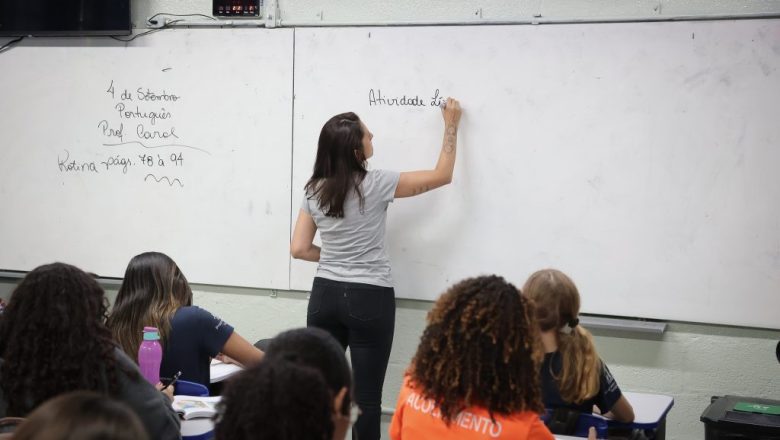 4 de Setembro
Português
Prof. Carol
Rotina págs. 78 à 94
Atividade Li
ACOLHIMENTO